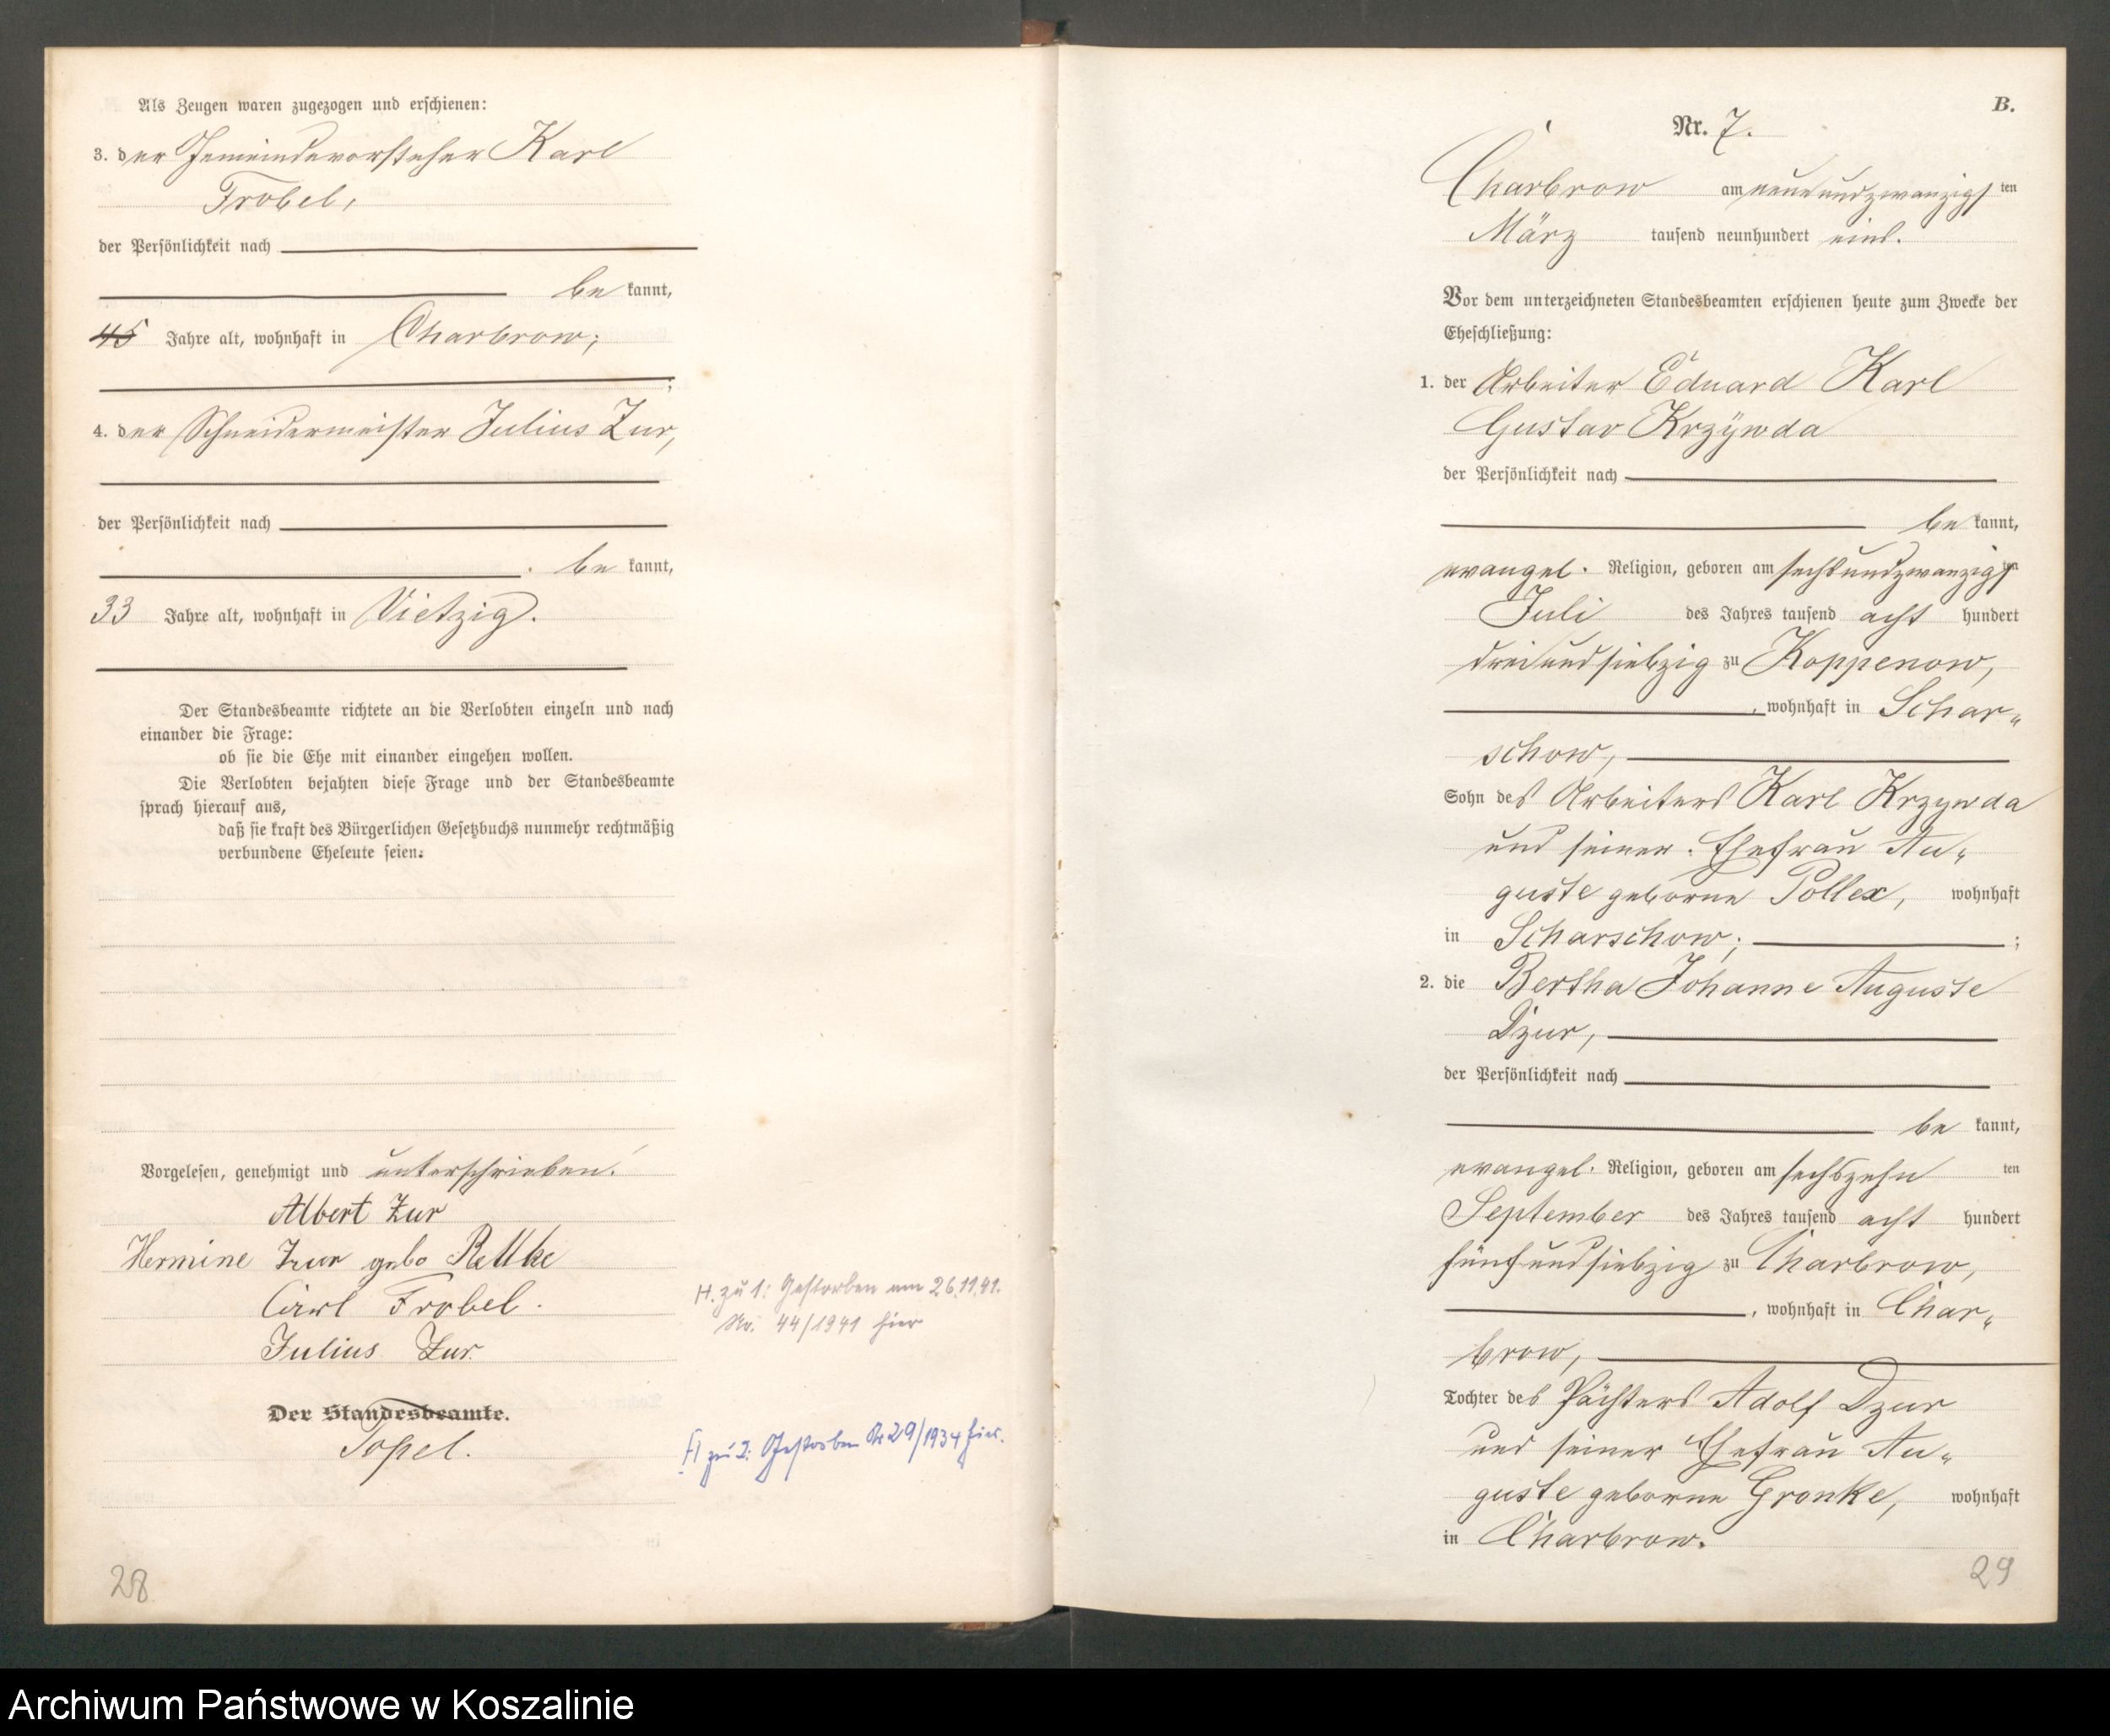 Als Zeugen waren zugezogen und erschienen:
3. der Gemeindevorsteher Karl
Frobel,
der Persönlichkeit nach
be kannt,
45 Jahre alt, wohnhaft in Charbrow;
;
4. der Schneidermeister Julius Zur,
der Persönlichkeit nach
be kannt,
33 Jahre alt, wohnhaft in Vietzig.
Der Standesbeamte richtete an die Verlobten einzeln und nach
einander die Frage:
ob sie die Ehe mit einander eingehen wollen.
Die Verlobten bejahten diese Frage und der Standesbeamte
sprach hierauf aus,
daß sie kraft des Bürgerlichen Gesetzbuchs nunmehr rechtmäßig
verbundene Eheleute seien.
Vorgelesen, genehmigt und unterschrieben.
Albert Zur
Hermine Zur gebo Rettke
Carl Frobel.
Julius Zur.
Der Standesbeamte.
Topel.
H. zu 1: Gestorben am 26.11.41.
No. 44/1941 hier
H zu 2: Gestorben Nr 29/1934 hier.
28
B.
Nr. 7.
Charbrow am neunundzwanzigsten
März tausend neunhundert eins.
Vor dem unterzeichneten Standesbeamten erschienen heute zum Zwecke der
Eheschließung:
1. der Arbeiter Eduard Karl
Gustav Krzÿwda
der Persönlichkeit nach
be kannt,
evangel. Religion, geboren am sechsundzwanzigsten
Juli des Jahres tausend acht hundert
dreiundsiebzig zu Koppenow,
, wohnhaft in Schar-
schow,
Sohn des Arbeiters Karl Krzywda
und seiner Ehefrau Au-
guste geborne Pollex, wohnhaft
in Scharschow; ;
2. die Bertha Johanne Auguste
Dzur,
der Persönlichkeit nach
be kannt,
evangel. Religion, geboren am sechszehn ten
September des Jahres tausend acht hundert
fünfundsiebzig zu Charbrow,
, wohnhaft in Char-
brow,
Tochter des Pächters Adolf Dzur
und seiner Ehefrau Au-
guste geborne Gronke, wohnhaft
in Charbrow.
29
Archiwum Państwowe w Koszalinie